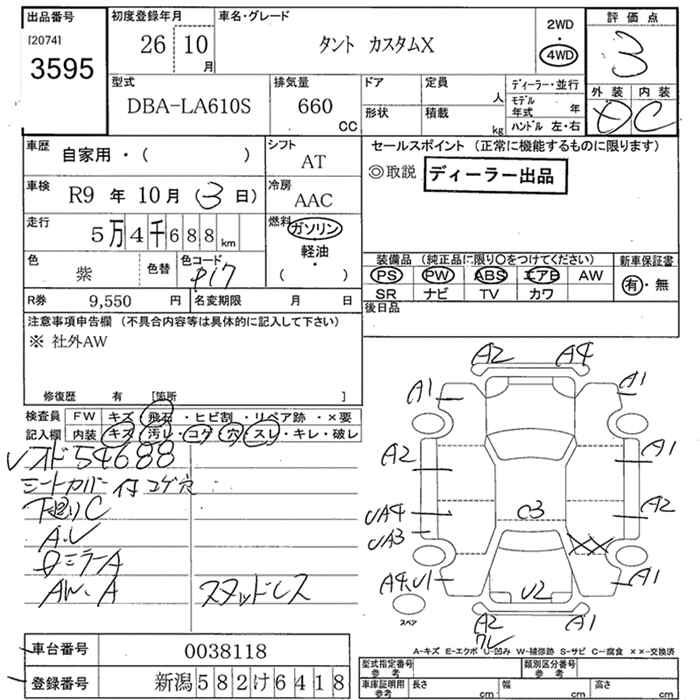 出品番号 初度登録年月 車名・グレード 2WD 評価点
[2074] 26 10月 タント カスタムX ・ 3
3595 4WD
型式 排気量 ドア 定員 人 ディーラー・並行 外装 内装
DBA-LA610S 660 CC 形状 積載 kg モデル年式 年 C
ハンドル 左・右
車歴 自家用・( ) シフト AT セールスポイント (正常に機能するものに限ります)
車検 R9 年 10 月 (3 日) 冷房 AAC ◎取説 ディーラー出品
走行 5万4千688km 燃料 ガソリン・軽油・( )
色 紫 色替 色コード P17 装備品 (純正品に限り○をつけてください) 新車保証書
PS PW ABS エアB AW 有・無
R券 9,550 円 名変期限 月 日 SR ナビ TV カワ
注意事項申告欄 (不具合内容等は具体的に記入して下さい) 後日品
※ 社外AW
修復歴 有 [箇所 ]
検査員記入欄 FW キズ・飛石・ヒビ割・リペア跡・×要
内装 キズ・汚レ・コゲ・穴・スレ・キレ・破レ
レオド 54688
シートカバー付 コゲ穴
下廻りC
A.U
ミラーA
AW、A スタッドレス
A2 A4
A1 A1
A2 A1
UA4 C3 A2
UA3 XX
A4,U1 U2 A1
A2 A1
スペア
A-キズ E-エクボ U-凹み W-補修跡 S-サビ C-腐食 ××-交換済
車台番号 0038118
登録番号 新潟582け6418
型式指定番号 参考 類別区分番号 参考
車庫証明用 参考 長さ cm 幅 cm 高さ cm